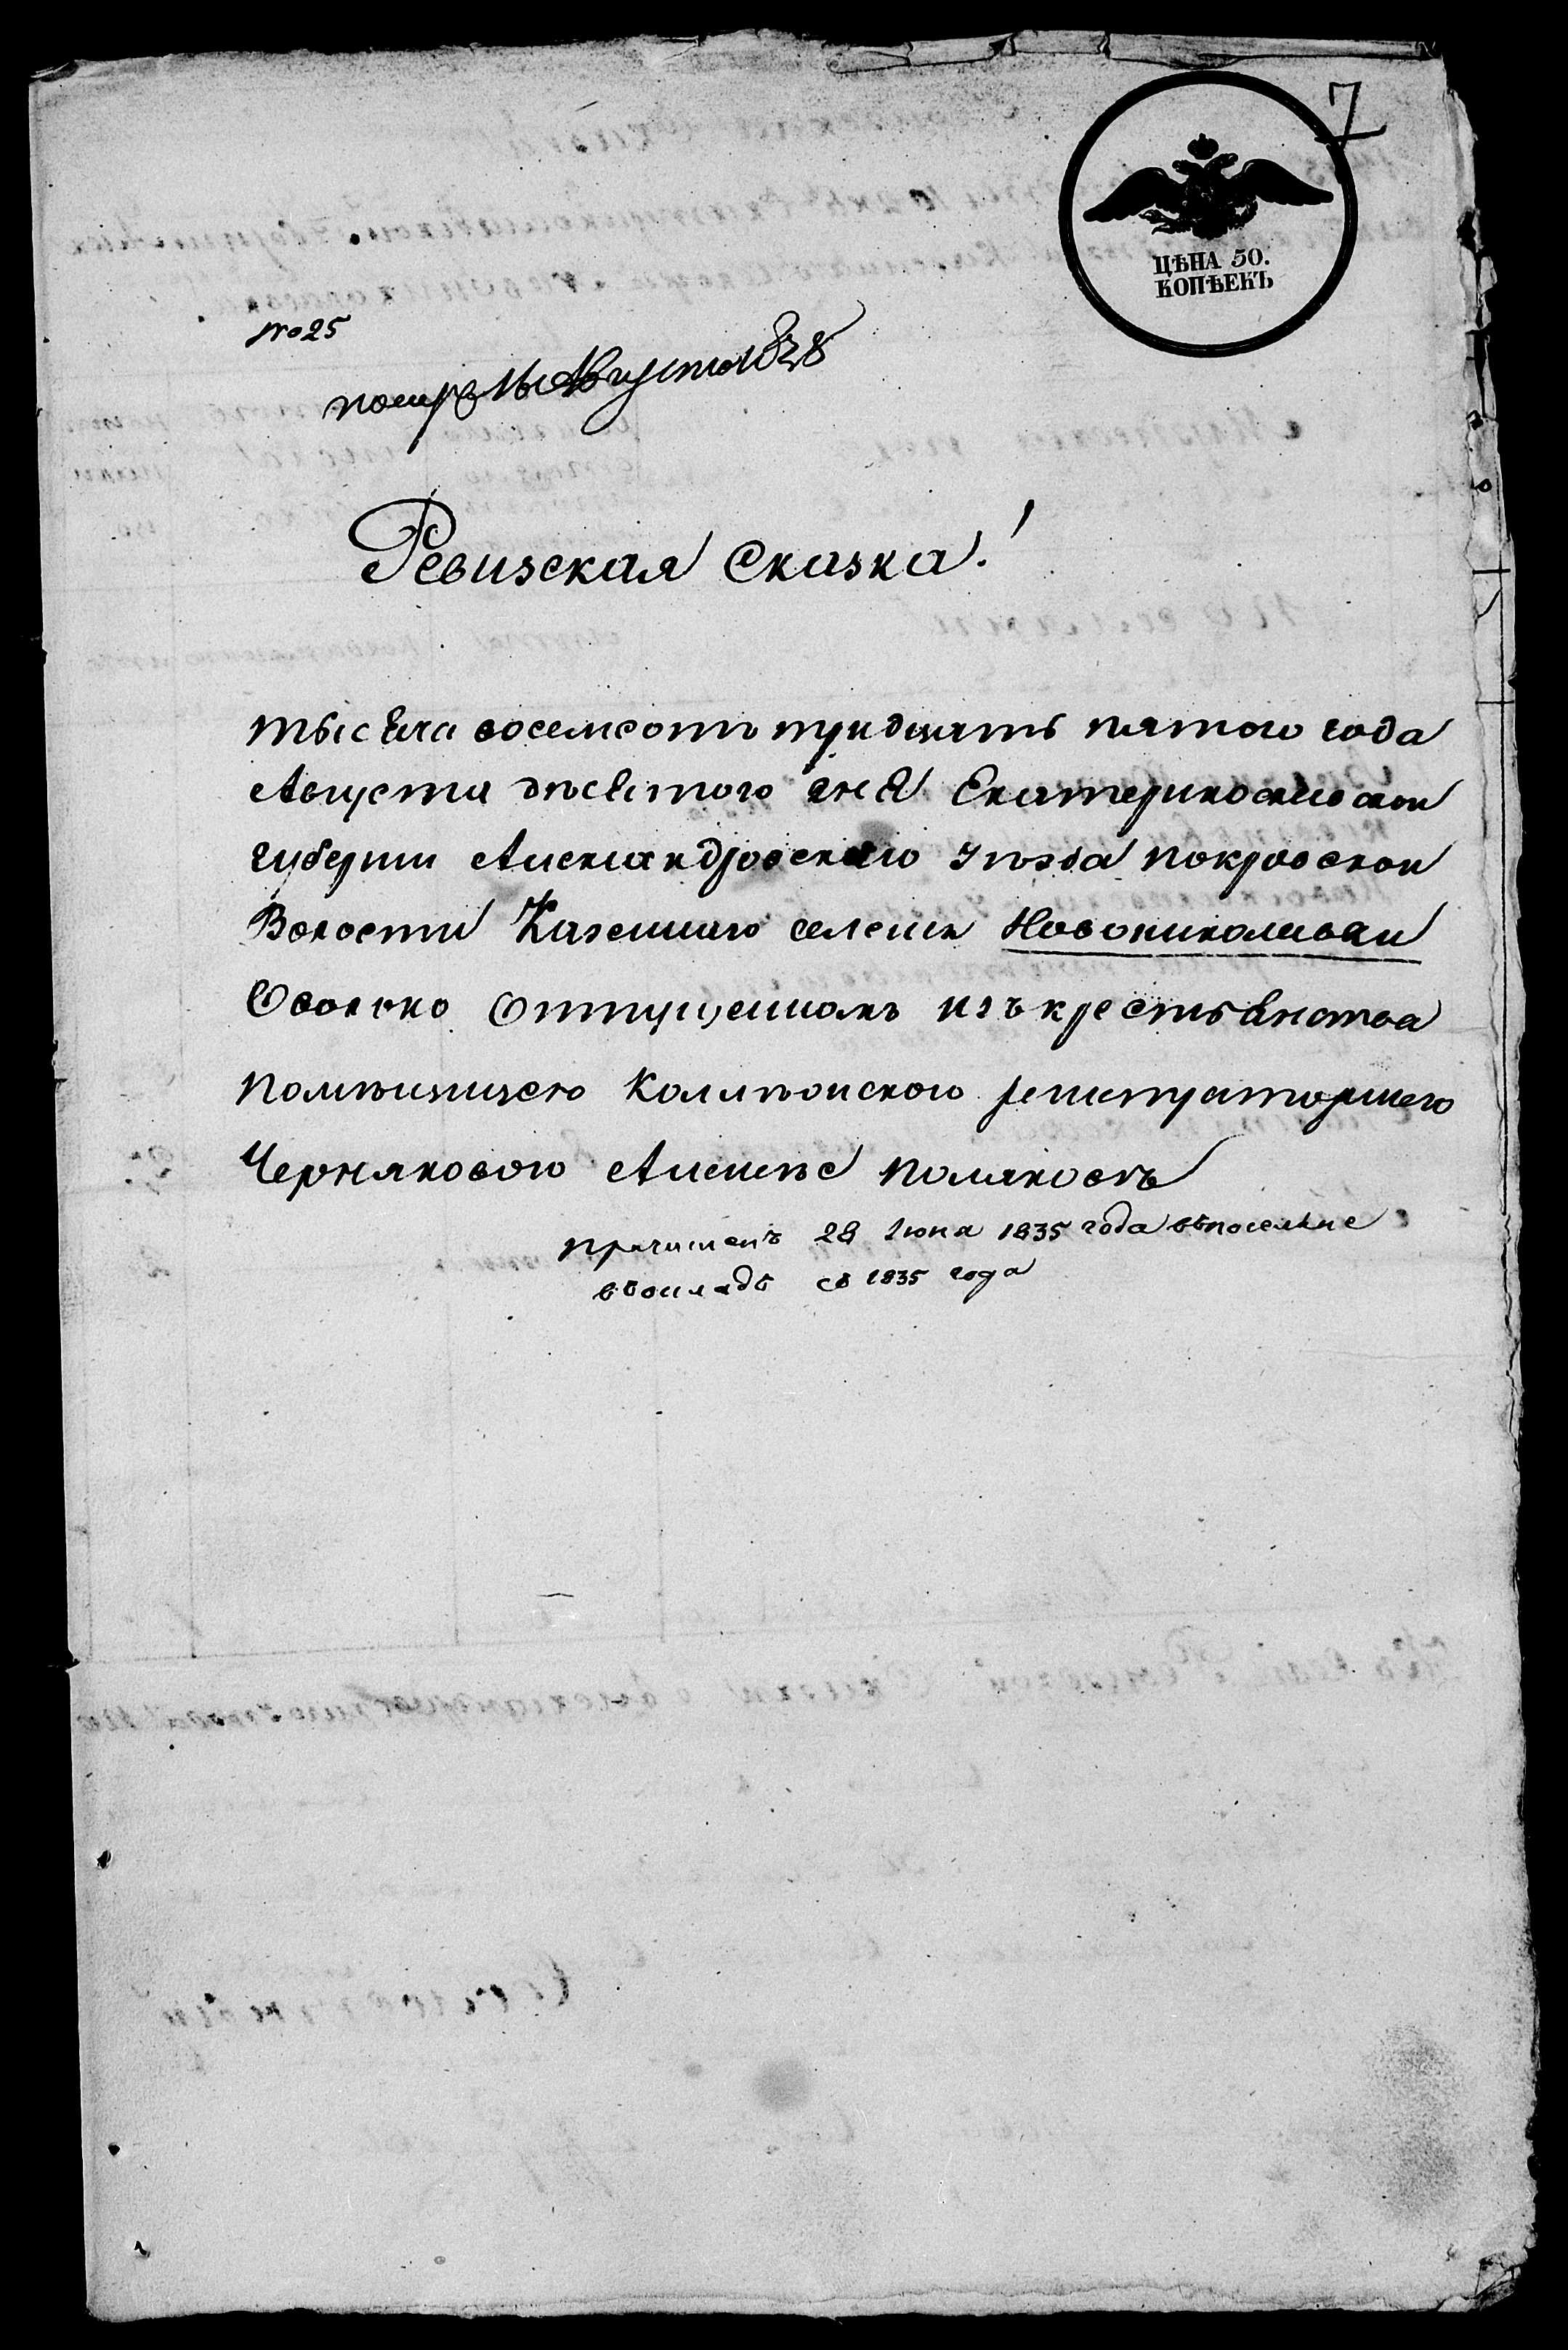 7
ЦѢНА 50.
КОПѢЕКЪ
№ 25
Августа
Ревизская Сказка!
тысяча восемсотъ тридцать пятого года
Августа дня Екатеринославской
губерни Александровскаго уѣзда покровской
Волости Казеннаго селения Новониколаевки
Отпущенномъ изъ крестьянства
помѣщицею Колѣжскою регистраторшею
Черняковою Алексѣе поляковѣ
причисленъ 28 Июня 1835 года въ поселяне
въ окладъ съ 1835 года